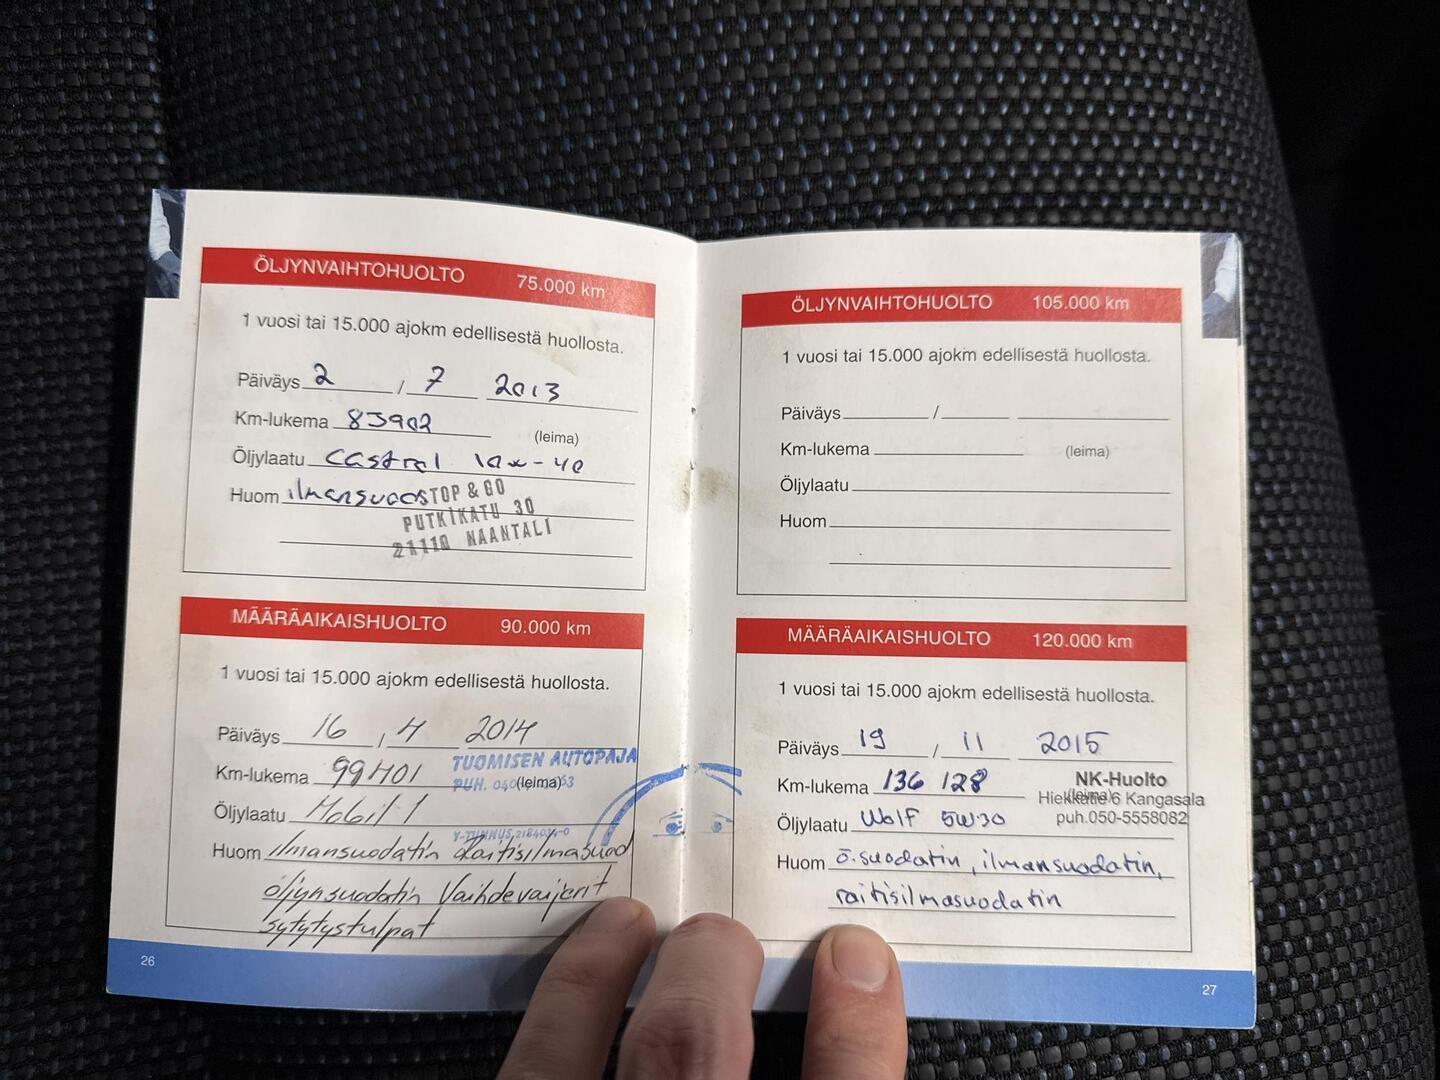 ÖLJYNVAIHTOHUOLTO 75.000 km
1 vuosi tai 15.000 ajokm edellisestä huollosta.
Päiväys 2 / 7 2013
Km-lukema 83902
(leima)
Öljylaatu Castrol 10w-40
Huom ilmansuod
STOP & GO
PUTKIKATU 30
21110 NAANTALI
MÄÄRÄAIKAISHUOLTO 90.000 km
1 vuosi tai 15.000 ajokm edellisestä huollosta.
Päiväys 16 / 4 2014
TUOMISEN AUTOPAJA
Km-lukema 99401
PUH. (leima)
Öljylaatu Mobil 1
Y-TUNNUS
Huom ilmansuodatin Raitisilmasuod
öljynsuodatin Vaihdevaijerit
sytytystulpat
26
ÖLJYNVAIHTOHUOLTO 105.000 km
1 vuosi tai 15.000 ajokm edellisestä huollosta.
Päiväys /
Km-lukema (leima)
Öljylaatu
Huom
MÄÄRÄAIKAISHUOLTO 120.000 km
1 vuosi tai 15.000 ajokm edellisestä huollosta.
Päiväys 19 / 11 2015
Km-lukema 136 128
NK-Huolto
(leima)
Hiekkatie 6 Kangasala
puh.050-5558082
Öljylaatu Wolf 5W30
Huom ö.suodatin, ilmansuodatin,
raitisilmasuodatin
27